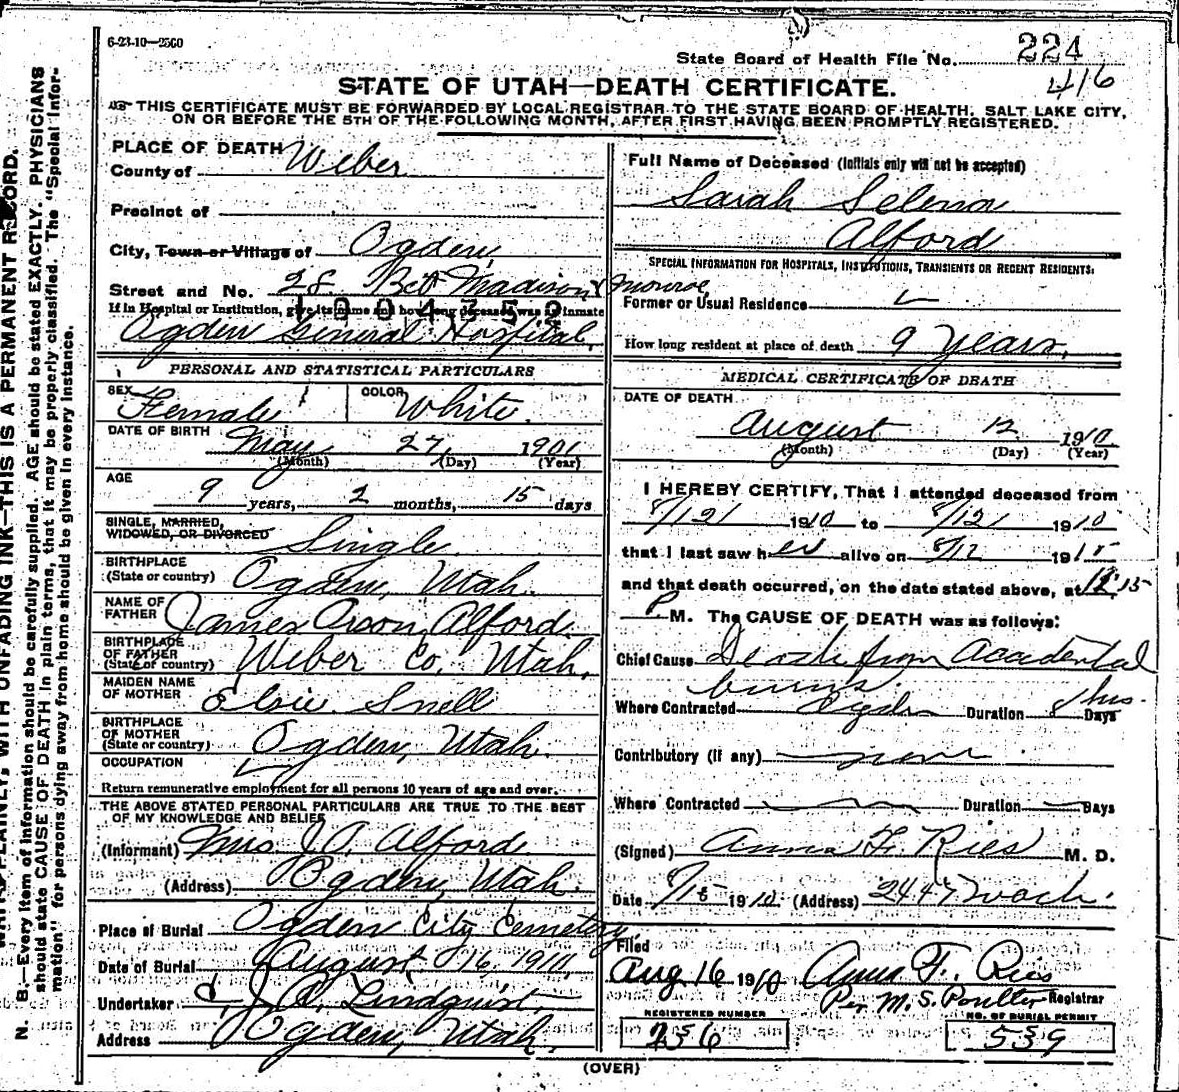 6-23-10—2500
State Board of Health File No. 224
416
STATE OF UTAH—DEATH CERTIFICATE.
THIS CERTIFICATE MUST BE FORWARDED BY LOCAL REGISTRAR TO THE STATE BOARD OF HEALTH, SALT LAKE CITY,
ON OR BEFORE THE 5TH OF THE FOLLOWING MONTH, AFTER FIRST HAVING BEEN PROMPTLY REGISTERED.
PLACE OF DEATH
County of Weber
Precinct of
City, Town or Village of Ogden,
Street and No. 28 Bet Madison & Monroe
If in Hospital or Institution, give its name and how long deceased was an inmate
1004352
Ogden General Hospital.
PERSONAL AND STATISTICAL PARTICULARS
SEX Female
COLOR White.
DATE OF BIRTH May 27, 1901
(Month) (Day) (Year)
AGE
9 years, 2 months, 15 days
SINGLE, MARRIED,
WIDOWED, OR DIVORCED Single.
BIRTHPLACE
(State or country) Ogden, Utah.
NAME OF
FATHER James Orson Alford.
BIRTHPLACE
OF FATHER
(State or country) Weber Co, Utah.
MAIDEN NAME
OF MOTHER Elsie Snell
BIRTHPLACE
OF MOTHER
(State or country) Ogden, Utah.
OCCUPATION
Return remunerative employment for all persons 10 years of age and over.
THE ABOVE STATED PERSONAL PARTICULARS ARE TRUE TO THE BEST
OF MY KNOWLEDGE AND BELIEF
(Informant) Mrs J. O. Alford
(Address) Ogden, Utah.
Place of Burial Ogden City Cemetery,
Date of Burial August 16, 1910.
Undertaker J. A. Lindquist,
Address Ogden, Utah.
Full Name of Deceased (Initials only will not be accepted)
Sarah Selenor
Alford
SPECIAL INFORMATION FOR HOSPITALS, INSTITUTIONS, TRANSIENTS OR RECENT RESIDENTS:
Former or Usual Residence
How long resident at place of death 9 years.
MEDICAL CERTIFICATE OF DEATH
DATE OF DEATH
August 12 1910
(Month) (Day) (Year)
I HEREBY CERTIFY, That I attended deceased from
8/12/ 1910 to 8/12/ 1910
that I last saw her alive on 8/12 1910
and that death occurred, on the date stated above, at 15
P. M. The CAUSE OF DEATH was as follows:
Chief Cause Death from accidental
burns.
Where Contracted Ogden Duration 8 hrs. Days
Contributory (if any) none
Where Contracted Duration Days
(Signed) Anna F. Ries M. D.
Date 8/15 1910 (Address) 2447 Wash.
Filed
Aug 16 1910 Anna F. Ries
Per M. S. Poulter Registrar
REGISTERED NUMBER
236
NO. OF BURIAL PERMIT
539
(OVER)
N. B.—Every item of information should be carefully supplied. AGE should be stated EXACTLY. PHYSICIANS
should state CAUSE OF DEATH in plain terms, that it may be properly classified. The "Special Infor-
mation" for persons dying away from home should be given in every instance.
PLAINLY, WITH UNFADING INK—THIS IS A PERMANENT RECORD.